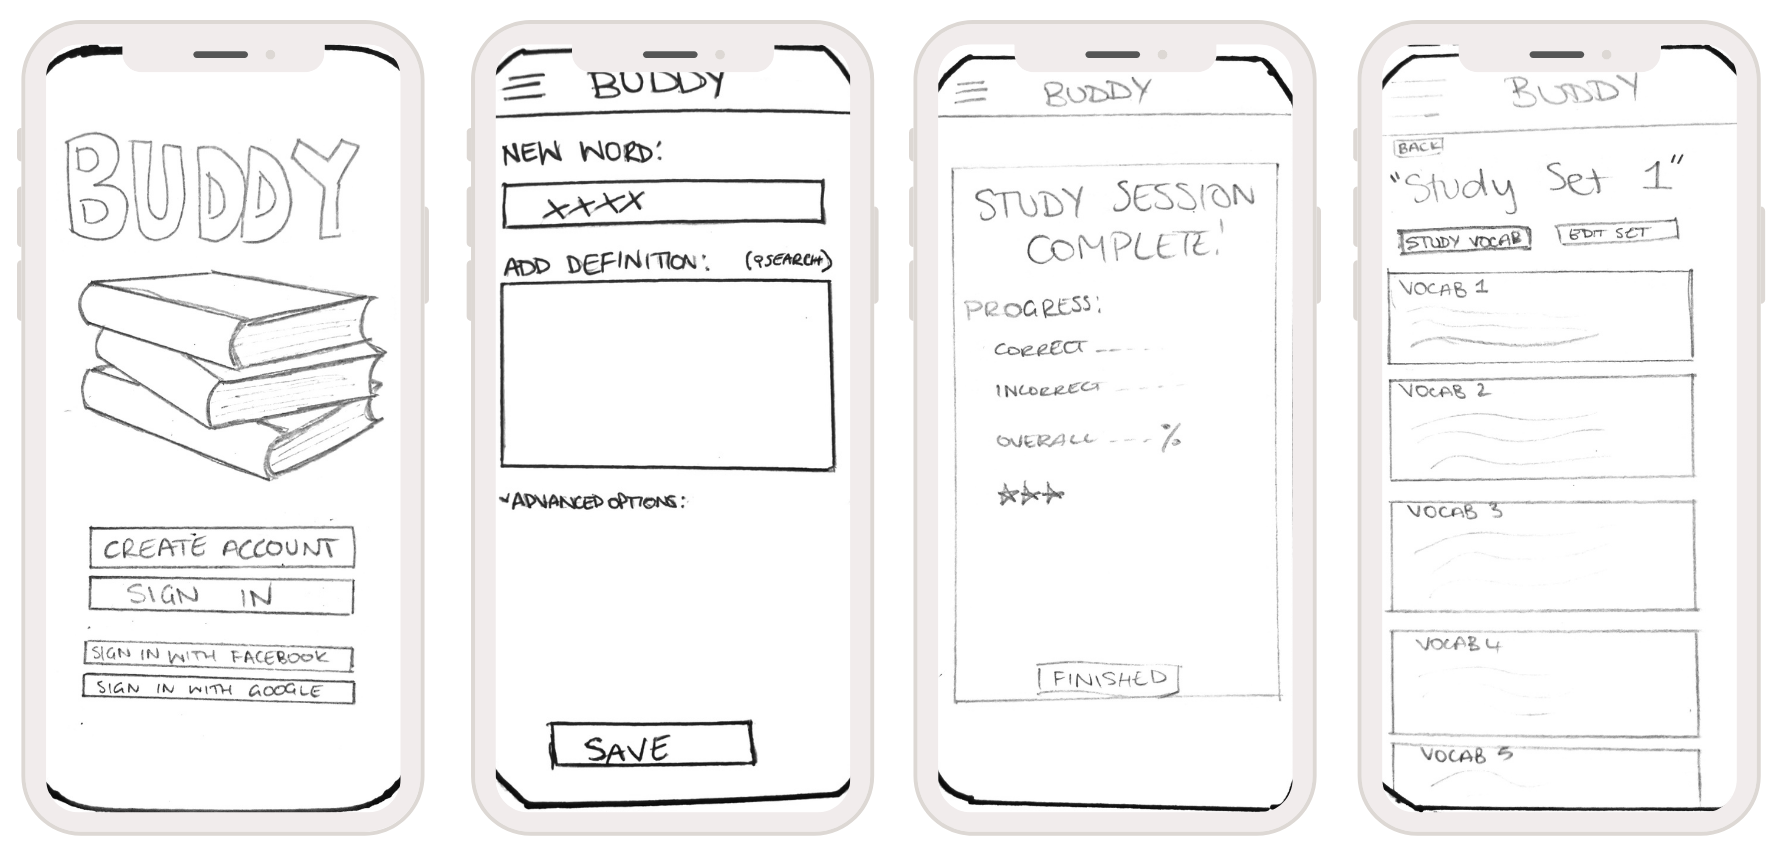 BUDDY
CREATE ACCOUNT
SIGN IN
SIGN IN WITH FACEBOOK
SIGN IN WITH GOOGLE
BUDDY
NEW WORD:
XXXX
ADD DEFINITION: (SEARCH)
ADVANCED OPTIONS:
SAVE
BUDDY
STUDY SESSION
COMPLETE!
PROGRESS:
CORRECT ----
INCORRECT ----
OVERALL ---- %
FINISHED
BUDDY
BACK
"Study Set 1"
STUDY VOCAB EDIT SET
VOCAB 1
VOCAB 2
VOCAB 3
VOCAB 4
VOCAB 5